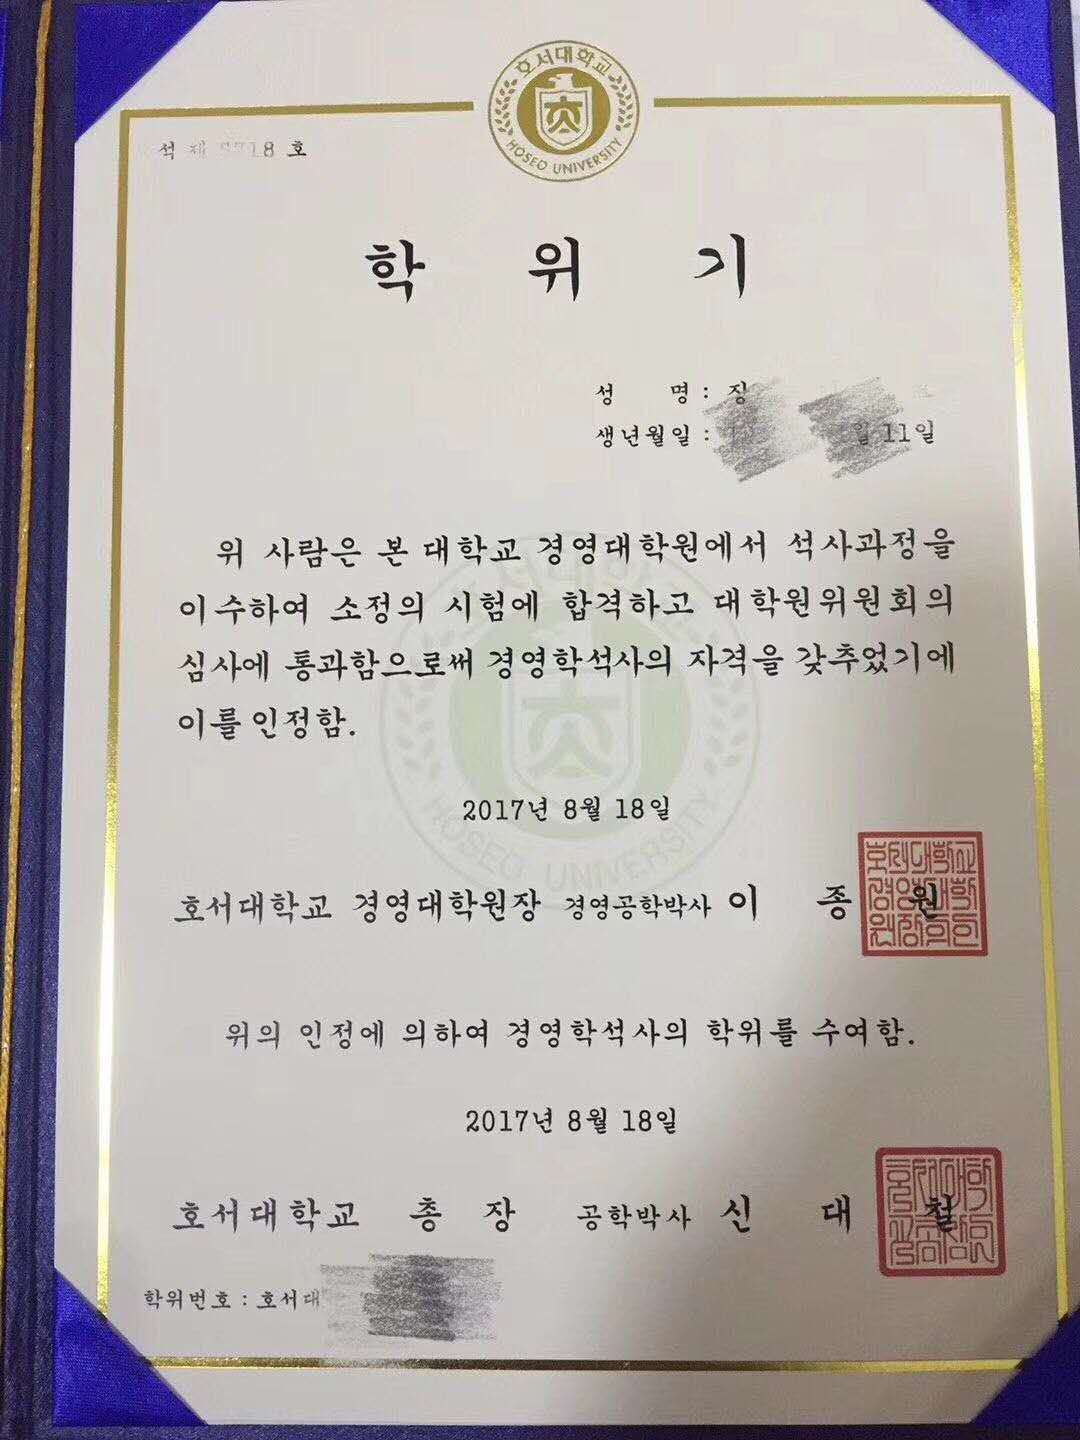 호서대학교
HOSEO UNIVERSITY
석 제 718 호
학 위 기
성 명 : 징
생년월일 : 월 11일
위 사람은 본 대학교 경영대학원에서 석사과정을
이수하여 소정의 시험에 합격하고 대학원위원회의
심사에 통과함으로써 경영학석사의 자격을 갖추었기에
이를 인정함.
HOSEO UNIVERSITY
2017년 8월 18일
호서대학교 경영대학원장 경영공학박사 이 종 원
위의 인정에 의하여 경영학석사의 학위를 수여함.
2017년 8월 18일
호서대학교 총 장 공학박사 신 대 철
학위번호 : 호서대